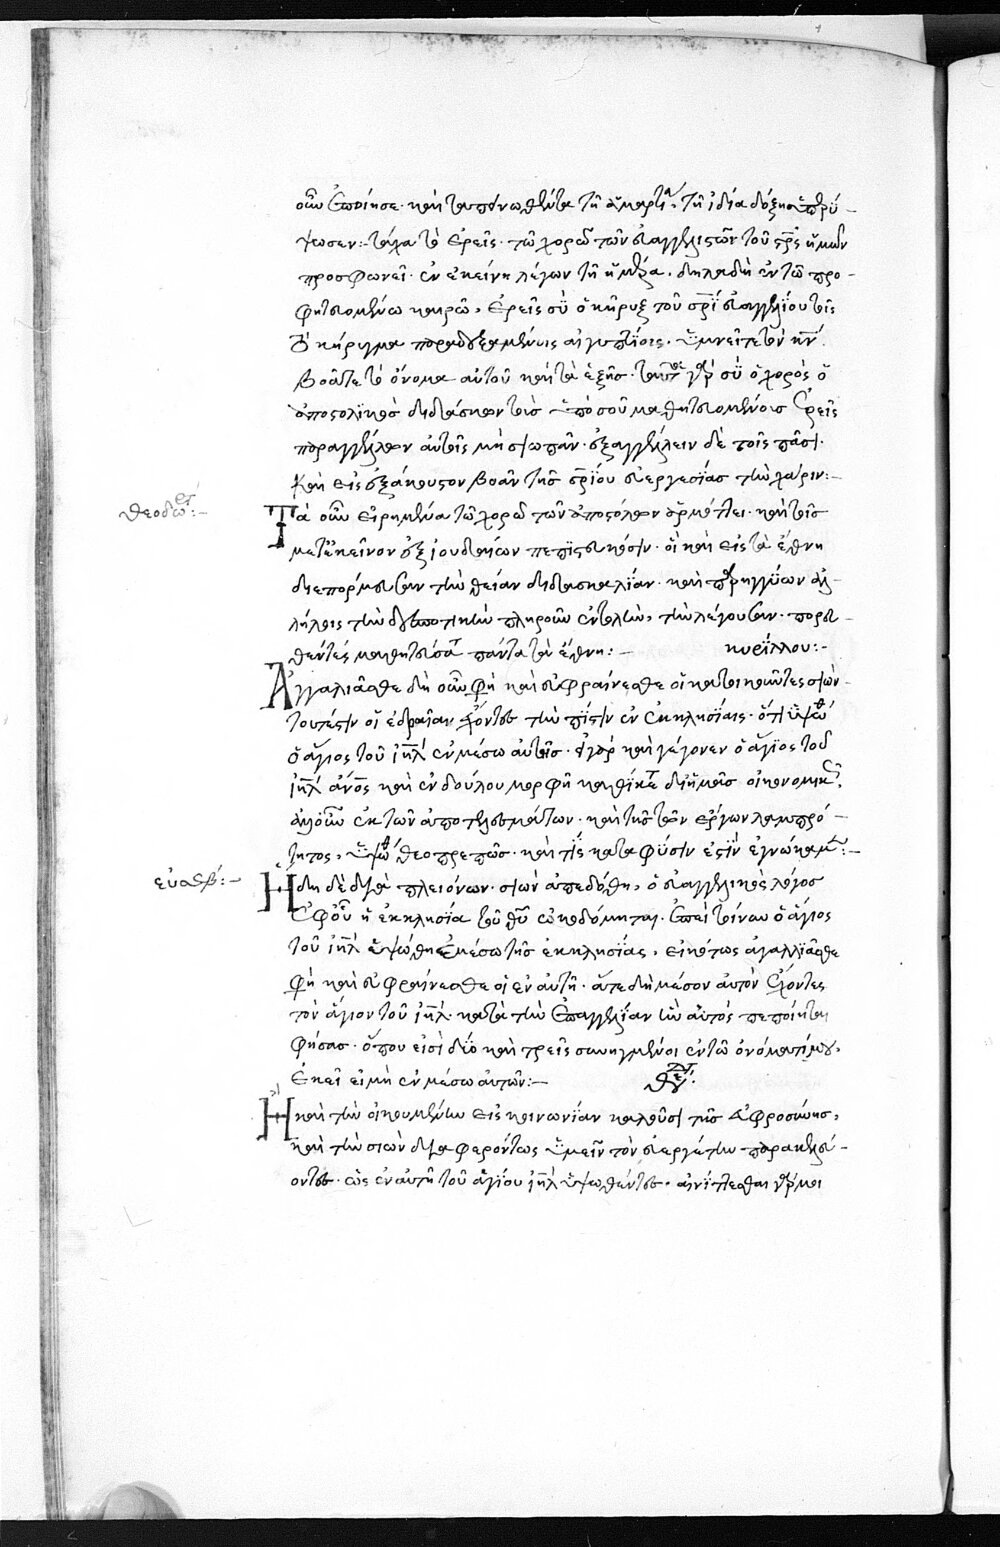 οὖν ἐποίησε· καὶ τὰ πεπονωθέντα τῇ ἁμαρτίᾳ, τῇ ἰδία δόξῃ
τάχα τὸ ἐρεῖς· τῷ χορῷ τῶν εὐαγγελιστῶν τοῦ σρς ἡμῶν
προσφωνεῖ· ἐν ἐκείνῃ λέγων τῇ ἡμέρα, δηλαδὴ ἐν τῶ προ-
φητευομένω καιρῶ, ἐρεῖς σὺ ὁ κῆρυξ τοῦ σρίου εὐαγγελίου τοῖς
τὸ κήρυγμα παραδεξαμένοις αἰγυπτίοις. ὑμνεῖτε τὸν κν
βοᾶτε τὸ ὄνομα αὐτοῦ καὶ τὰ ἑξῆς· γὰρ σὺ ὁ χορὸς ὁ
ἀποστολικὸς διδάσκων τοῖς ὑπὸ σοῦ μαθητευομένοις ἐρεῖς
παραγγέλλων αὐτοῖς μὴ σιωπᾶν· ἐξαγγέλλειν δὲ τοῖς πᾶσι.
καὶ εἰς ἐξάκουστον βοᾶν τῆς σρίου εὐεργεσίας τὴν χάριν:-
θεοδώ:-
Τὰ οὖν εἰρημένα τῶ χορῶ τῶν ἀποστόλων ἁρμόττει· καὶ τοῖς
μετ' ἐκεῖνον ἐξ ἰουδαίων πεπιστευκόσιν· οἳ καὶ εἰς τὰ ἔθνη
διεπόρθμευσαν τὴν θείαν διδασκαλίαν· καὶ παρηγγύων ἀλ-
λήλοις τὴν δεσποτικὴν πληροῦν ἐντολὴν, τὴν λέγουσαν· πορευ-
θέντες μαθητεύσατε πάντα τὰ ἔθνη:- κυρίλλου:-
Ἀγγαλιᾶσθε δὴ οὖν φη καὶ εὐφραίνεσθε οἱ κατοικοῦντες σιών·
τουτέστιν οἱ ἑδραίαν ἔχοντες τὴν πίστιν ἐν ἐκκλησίαις· ὅτι ὑψώθη
ὁ ἅγιος τοῦ ιηλ ἐν μέσω αὐτοῖς· εἰ γὰρ καὶ γέγονεν ὁ ἅγιος τοῦ
ιηλ ανος καὶ ἐν δούλου μορφῇ καθῖκται δι' ἡμᾶς οἰκονομικῶς,
ἀλλ' οὖν ἐκ τῶν ἀποτελεσμάτων· καὶ τῆς τῶν ἔργων λαμπρό-
τητος, ὑψώθη θεοπρεπῶς· καὶ τίς κατα φύσιν ἐστὶν ἐγνώκαμεν:-
εὐσεβ:-
Ἤδη δὲ διὰ πλειόνων· σιὼν ἀπεδόθη, ὁ εὐαγγελικὸς λόγος
ἐφ' οὗ ἡ ἐκκλησία τοῦ θυ ὠκοδόμηται, ἐπεὶ τοίνυν ὁ ἅγιος
τοῦ ιηλ ὑψώθη ἐν μέσω τῆς ἐκκλησίας, εἰκότως ἀγαλλιᾶσθε
φη καὶ εὐφραίνεσθε οἱ ἐν αὐτῇ· ἅτε δὴ μέσον αὐτὸν ἔχοντες
τὸν ἅγιον τοῦ ιηλ· κατὰ τὴν ἐπαγγελίαν ἣν αὐτὸς πεποίηται
φήσας· ὅπου εἰσὶ δύο καὶ τρεῖς συνηγμένοι ἐν τῶ ὀνόματί μου,
ἐκεῖ εἰμὴ ἐν μέσω αὐτῶν:-
Ἢ καὶ τὴν οἰκουμένην εἰς κοινωνίαν καλοῦσι τῆς εὐφροσύνης,
καὶ τὴν σιὼν διαφερόντως ὑμνεῖν τὸν εὐεργέτην παρακελεύ-
οντες· ὡς ἐν αὐτῇ τοῦ ἁγίου ιηλ ὑψωθέντος· αἰνίττεσθαι γάρ μοι